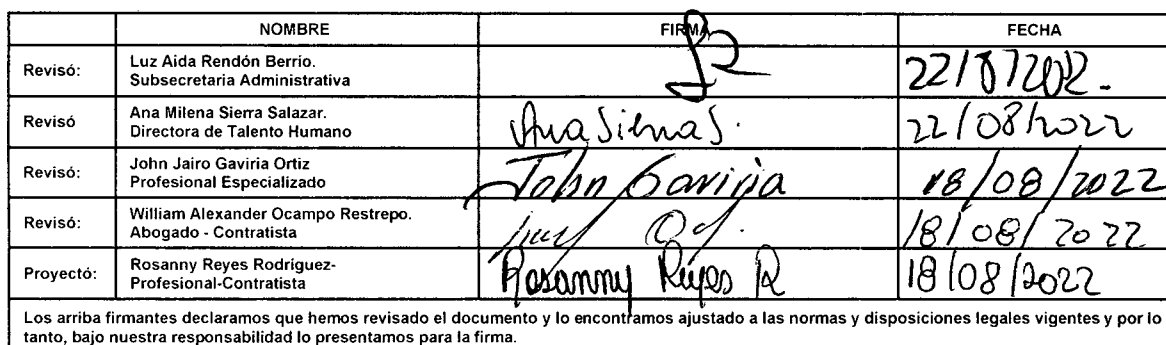 NOMBRE FIRMA FECHA
Revisó: Luz Aida Rendón Berrio.
Subsecretaria Administrativa
Revisó Ana Milena Sierra Salazar.
Directora de Talento Humano
Ana Sierra S. 22/08/2022
Revisó: John Jairo Gaviria Ortiz
Profesional Especializado
John Gaviria 18/08/2022
Revisó: William Alexander Ocampo Restrepo.
Abogado - Contratista
18/08/2022
Proyectó: Rosanny Reyes Rodríguez-
Profesional-Contratista
Rosanny Reyes R 18/08/2022
Los arriba firmantes declaramos que hemos revisado el documento y lo encontramos ajustado a las normas y disposiciones legales vigentes y por lo
tanto, bajo nuestra responsabilidad lo presentamos para la firma.